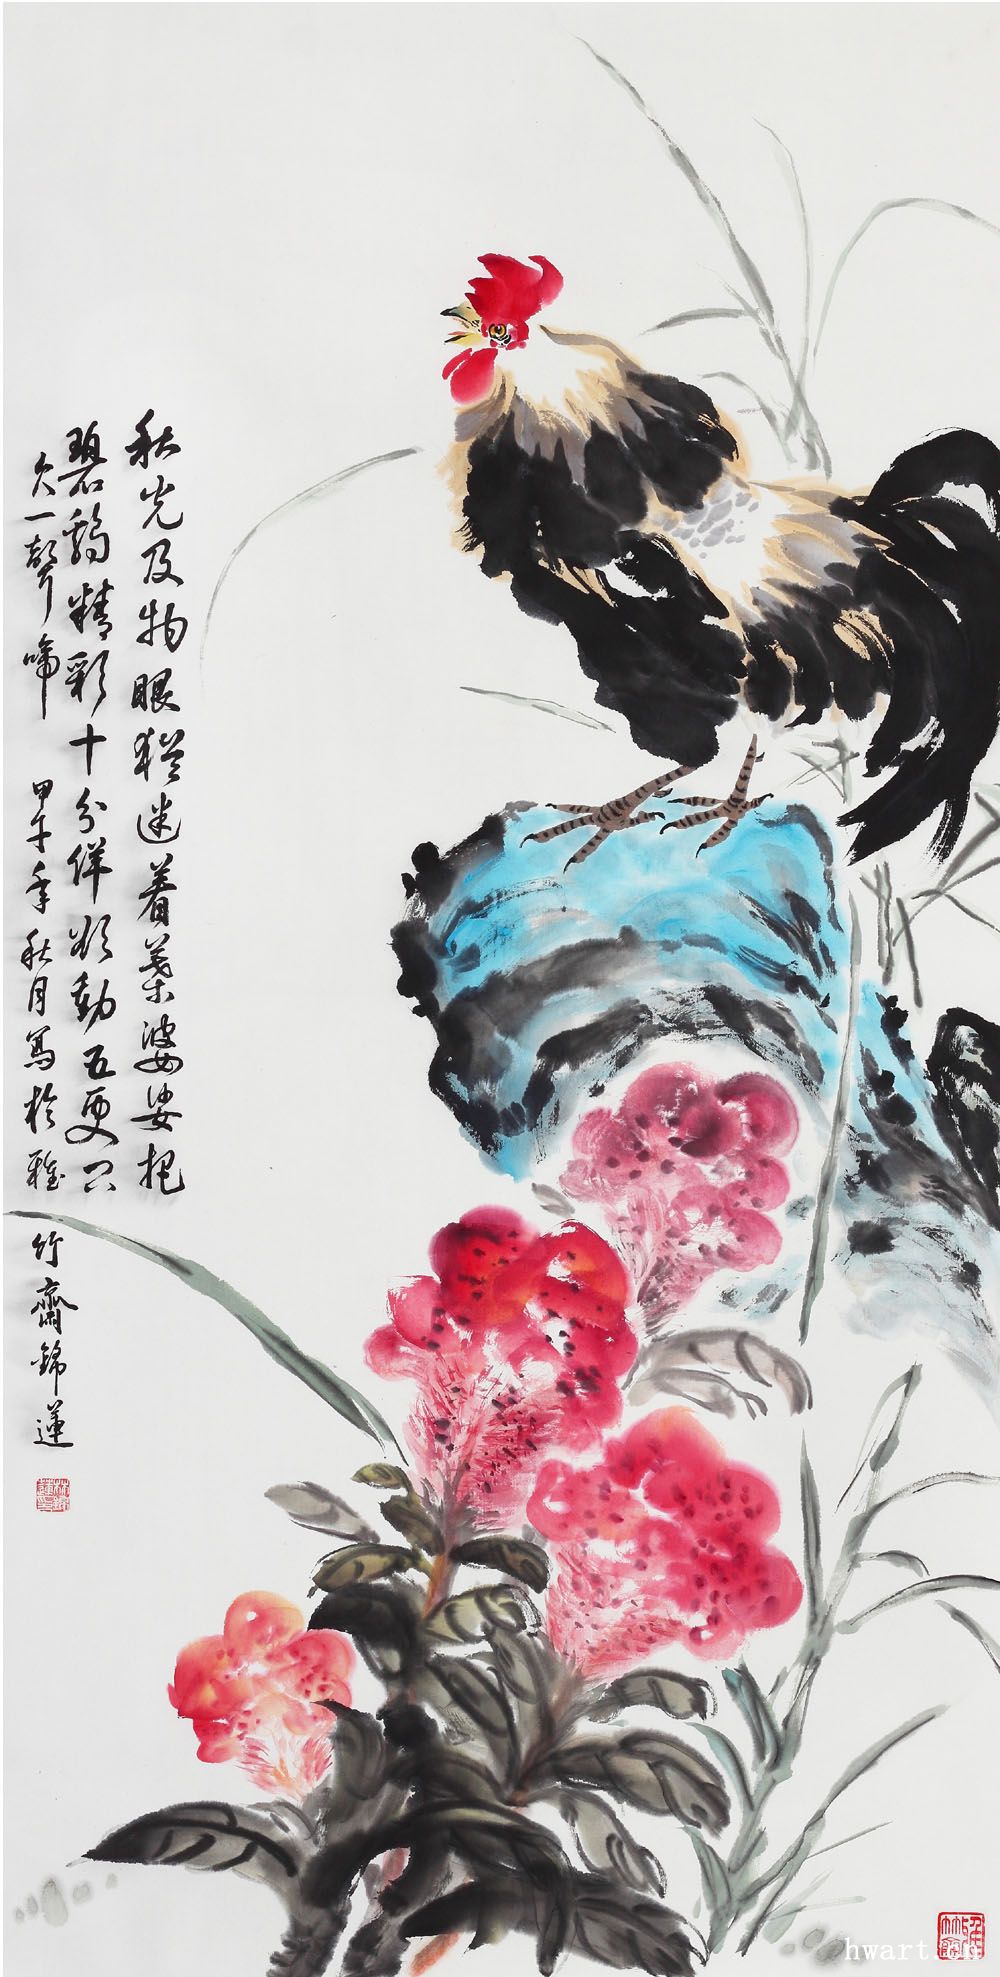 秋光及物眼猶迷着葉婆娑拟
碧鷄精彩十分佯欲動五更只
欠一聲啼 甲午年秋月寫於雅竹齋錦蓮
hwart.cn